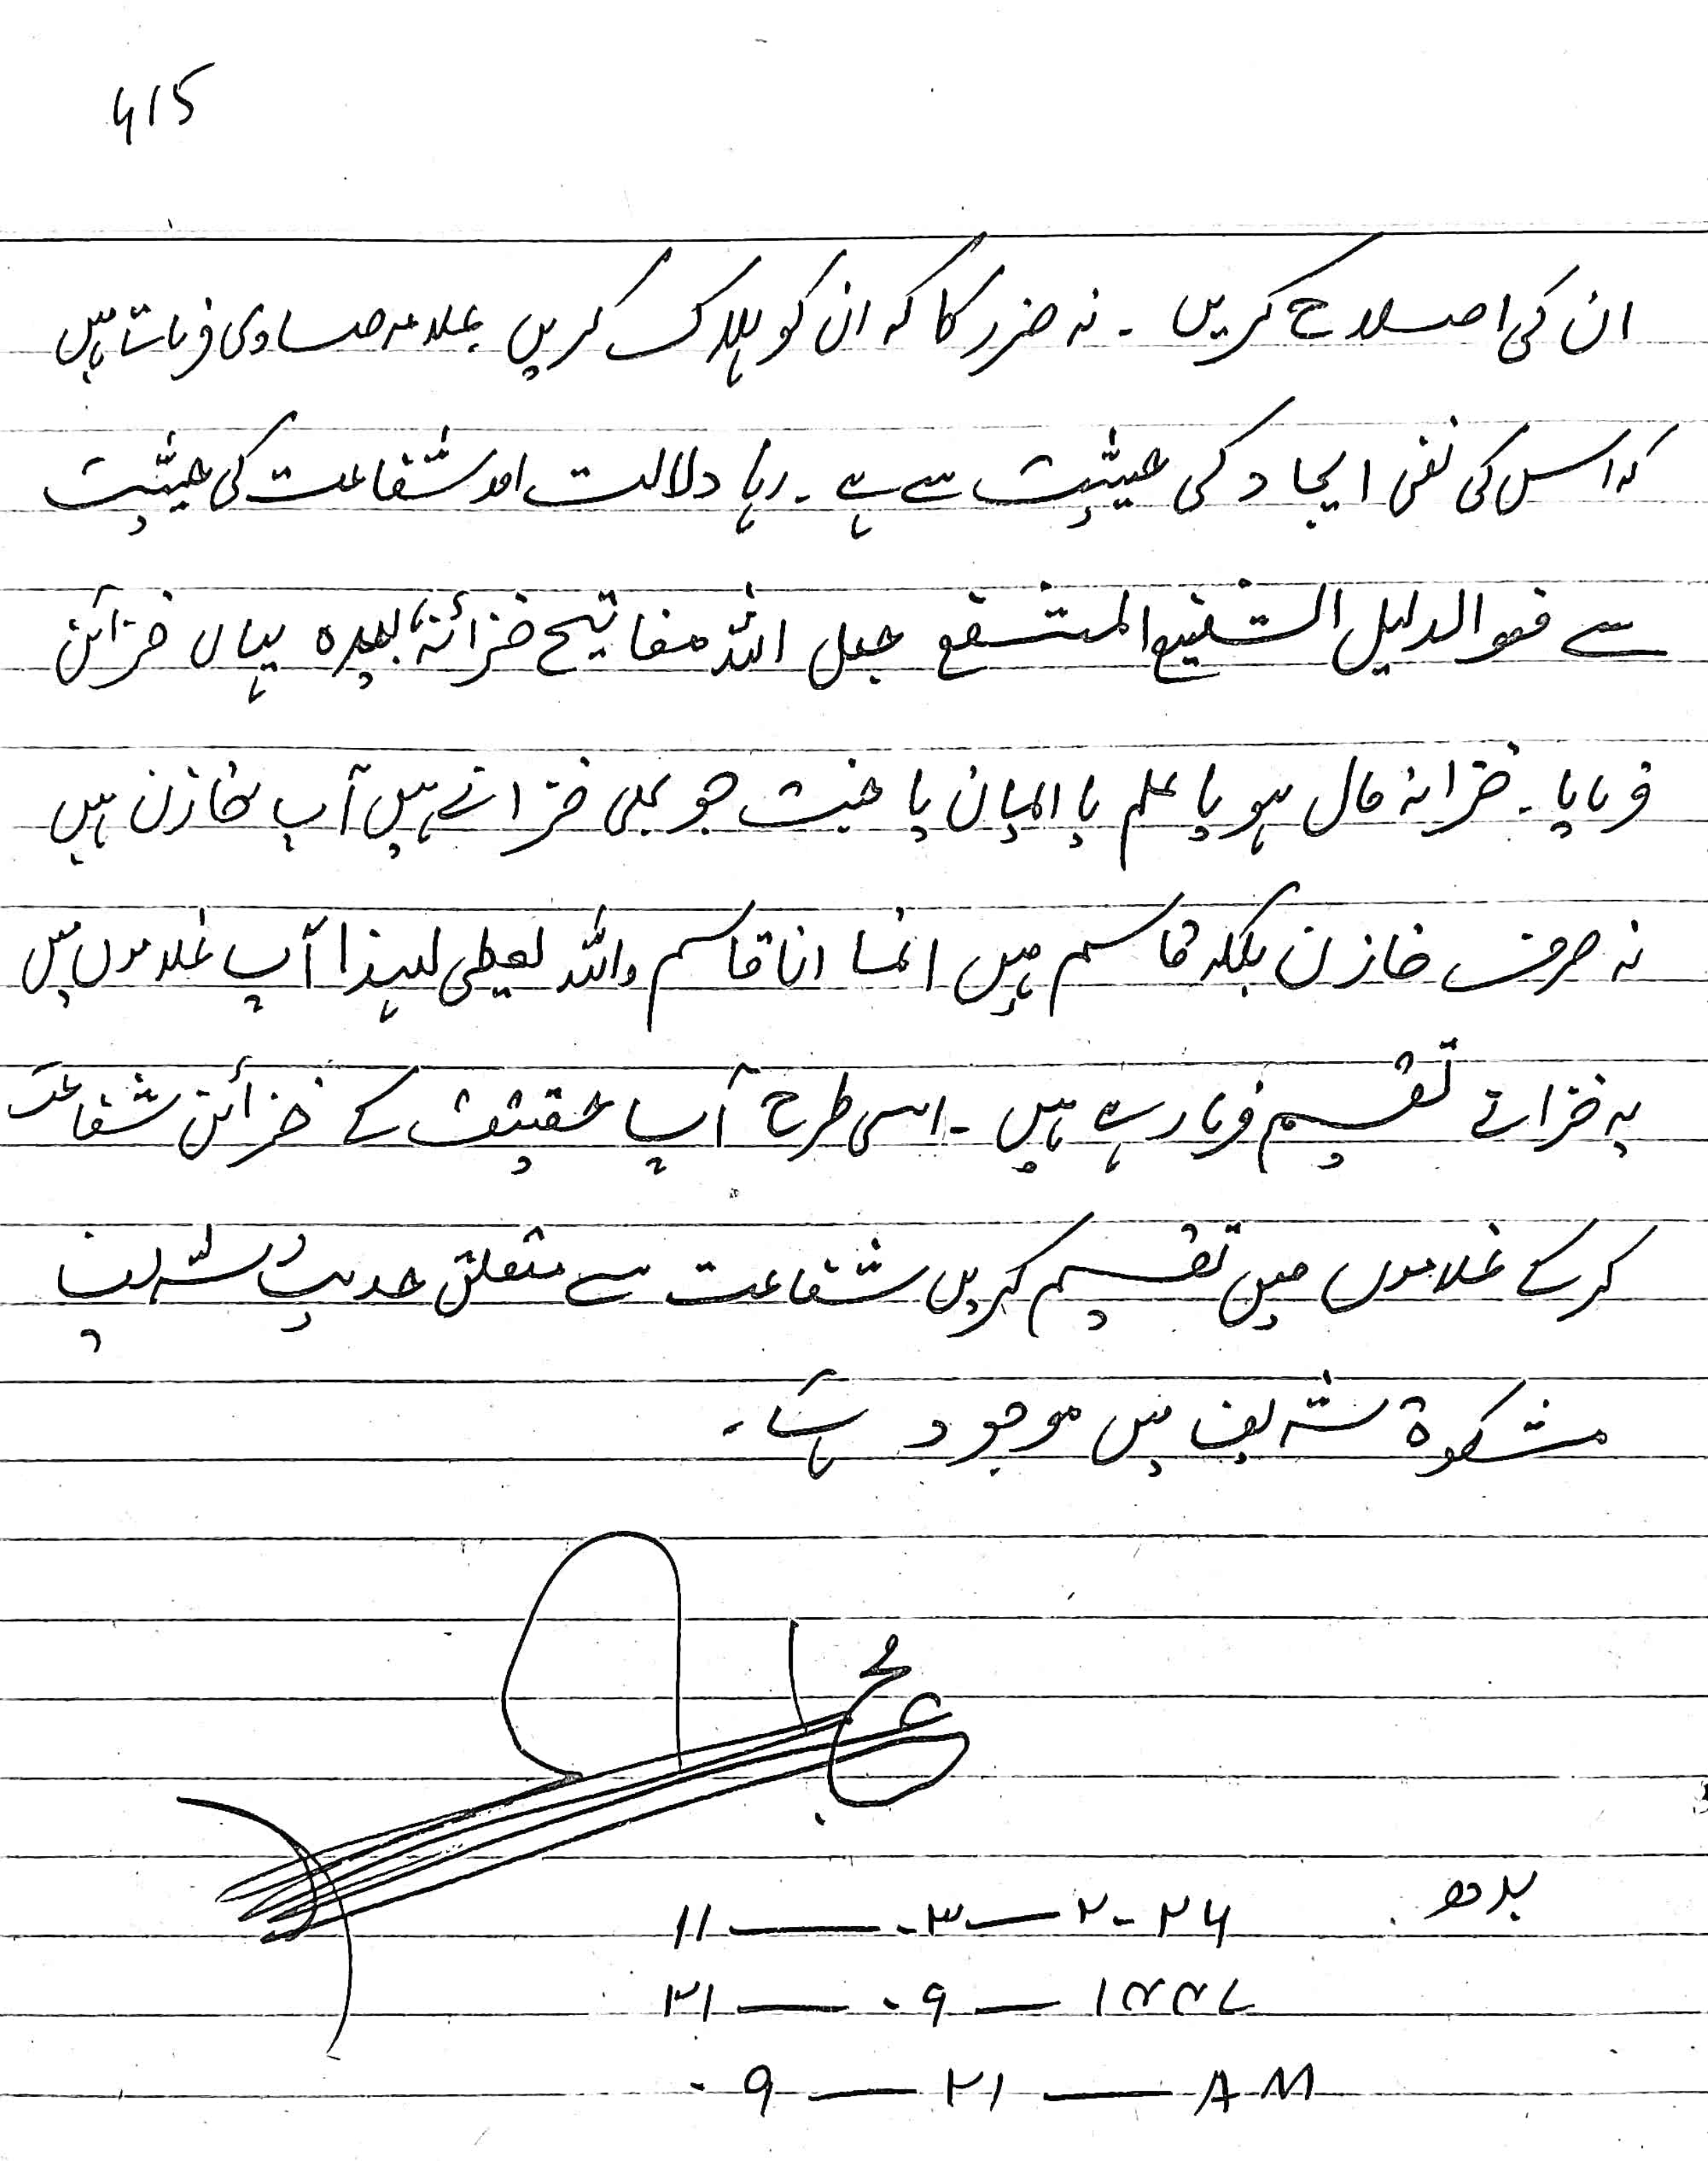 415
ان کی اصلاح کریں ۔ نہ ضرر کا کہ ان کو ہلاک کریں علامہ صاوی فرماتے ہیں
کہ اس کی نفی ایجاد کی حیثیت سے ہے ۔ رہا دلالت اور شفاعت کی حیثیت
سے فھو الدلیل الشفیع المشفع جعل اللہ مفاتیح خزائنہ بیدہ یہاں خزائن
فرمایا ۔ خزانہ مال ہو یا علم یا ایمان یا جنت جو بھی خزانے ہیں آپ خازن ہیں
نہ صرف خازن بلکہ قاسم ہیں انما انا قاسم واللہ یعطی لہذا آپ غلاموں میں
یہ خزانے تقسیم فرما رہے ہیں ۔ اسی طرح آپ حقیقت کے خزائن شفاعت
کرکے غلاموں میں تقسیم کریں شفاعت سے متعلق حدیث شریف
مشکوۃ شریف میں موجود ہے ۔
بدھ ۱۱ — ۰۳ — ۲۰۲۶
۲۱ — ۰۹ — ۱۴۴۷
۰۹ — ۲۱ — AM